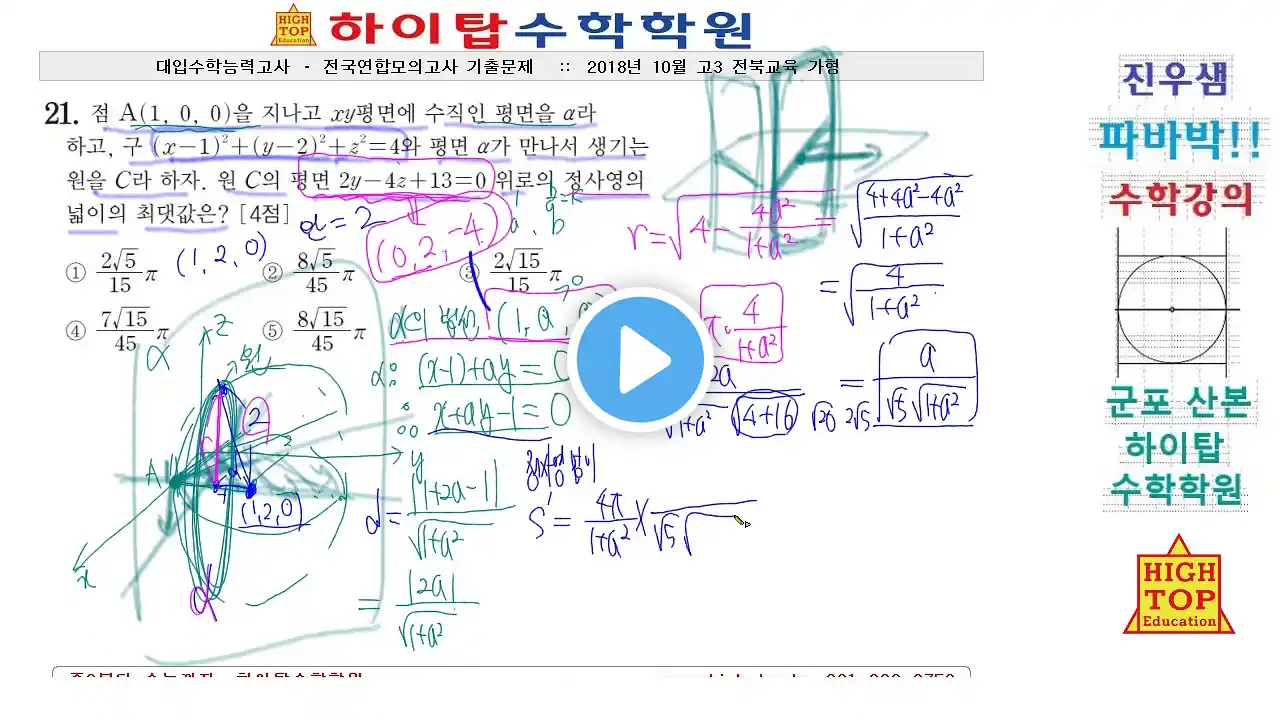 HIGH
TOP
Education
하이탑수학학원
대입수학능력고사 - 전국연합모의고사 기출문제 :: 2018년 10월 고3 전북교육 가형
21. 점 A(1, 0, 0)을 지나고 xy평면에 수직인 평면을 α라
하고, 구 (x−1)²+(y−2)²+z²=4와 평면 α가 만나서 생기는
원을 C라 하자. 원 C의 평면 2y−4z+13=0 위로의 정사영의
넓이의 최댓값은? [4점]
① 2√5/15 π ② 8√5/45 π ③ 2√15/15 π
④ 7√15/45 π ⑤ 8√15/45 π
(1, 2, 0)
=2
(0, 2, -4)
a, b
b/a=k
r=√(4 - 4a²/(1+a²)) = √((4+4a²-4a²)/(1+a²))
= √(4/(1+a²))
α의 법선 (1, a,
α: (x-1)+ay=0
∴ x+ay-1=0
4/(1+a²)
2a
√(1+a²) √(4+16)
= a/(√5√(1+a²))
√20 2√5
d = |1+2a-1|/√(1+a²)
= |2a|/√(1+a²)
S' = 4π/(1+a²) × √5√
α
z
원
2
A
y
(1,2,0)
x
진우샘
파바박!!
수학강의
군포 산본
하이탑
수학학원
HIGH
TOP
Education